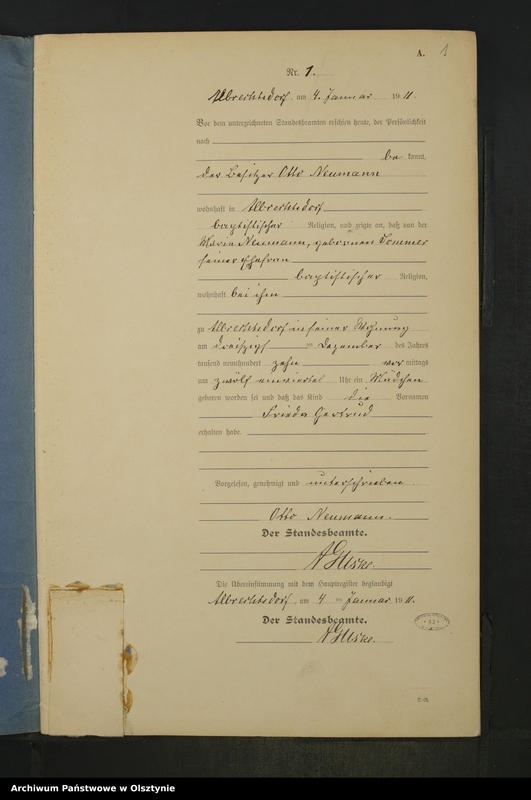 A. 1
Nr. 1.
Albrechtsdorf, am 4. Januar 1911.
Vor dem unterzeichneten Standesbeamten erschien heute, der Persönlichkeit
nach
be kannt,
der Besitzer Otto Neumann
wohnhaft in Albrechtsdorf
baptistischer Religion, und zeigte an, daß von der
Marie Neumann, geborenen Sommer
seiner Ehefrau
baptistischer Religion,
wohnhaft bei ihm
zu Albrechtsdorf in seiner Wohnung
am dreißigsten Dezember des Jahres
tausend neunhundert zehn vor mittags
um zwölf einviertel Uhr ein Mädchen
geboren worden sei und daß das Kind die Vornamen
Frieda Gertrud
erhalten habe.
Vorgelesen, genehmigt und unterschrieben
Otto Neumann.
Der Standesbeamte.
Die Übereinstimmung mit dem Hauptregister beglaubigt
Albrechtsdorf, am 4 ten Januar 1911.
Der Standesbeamte.
Archiwum Państwowe w Olsztynie